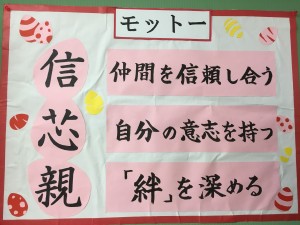 モットー
信 仲間を信頼し合う
芯 自分の意志を持つ
親 「絆」を深める